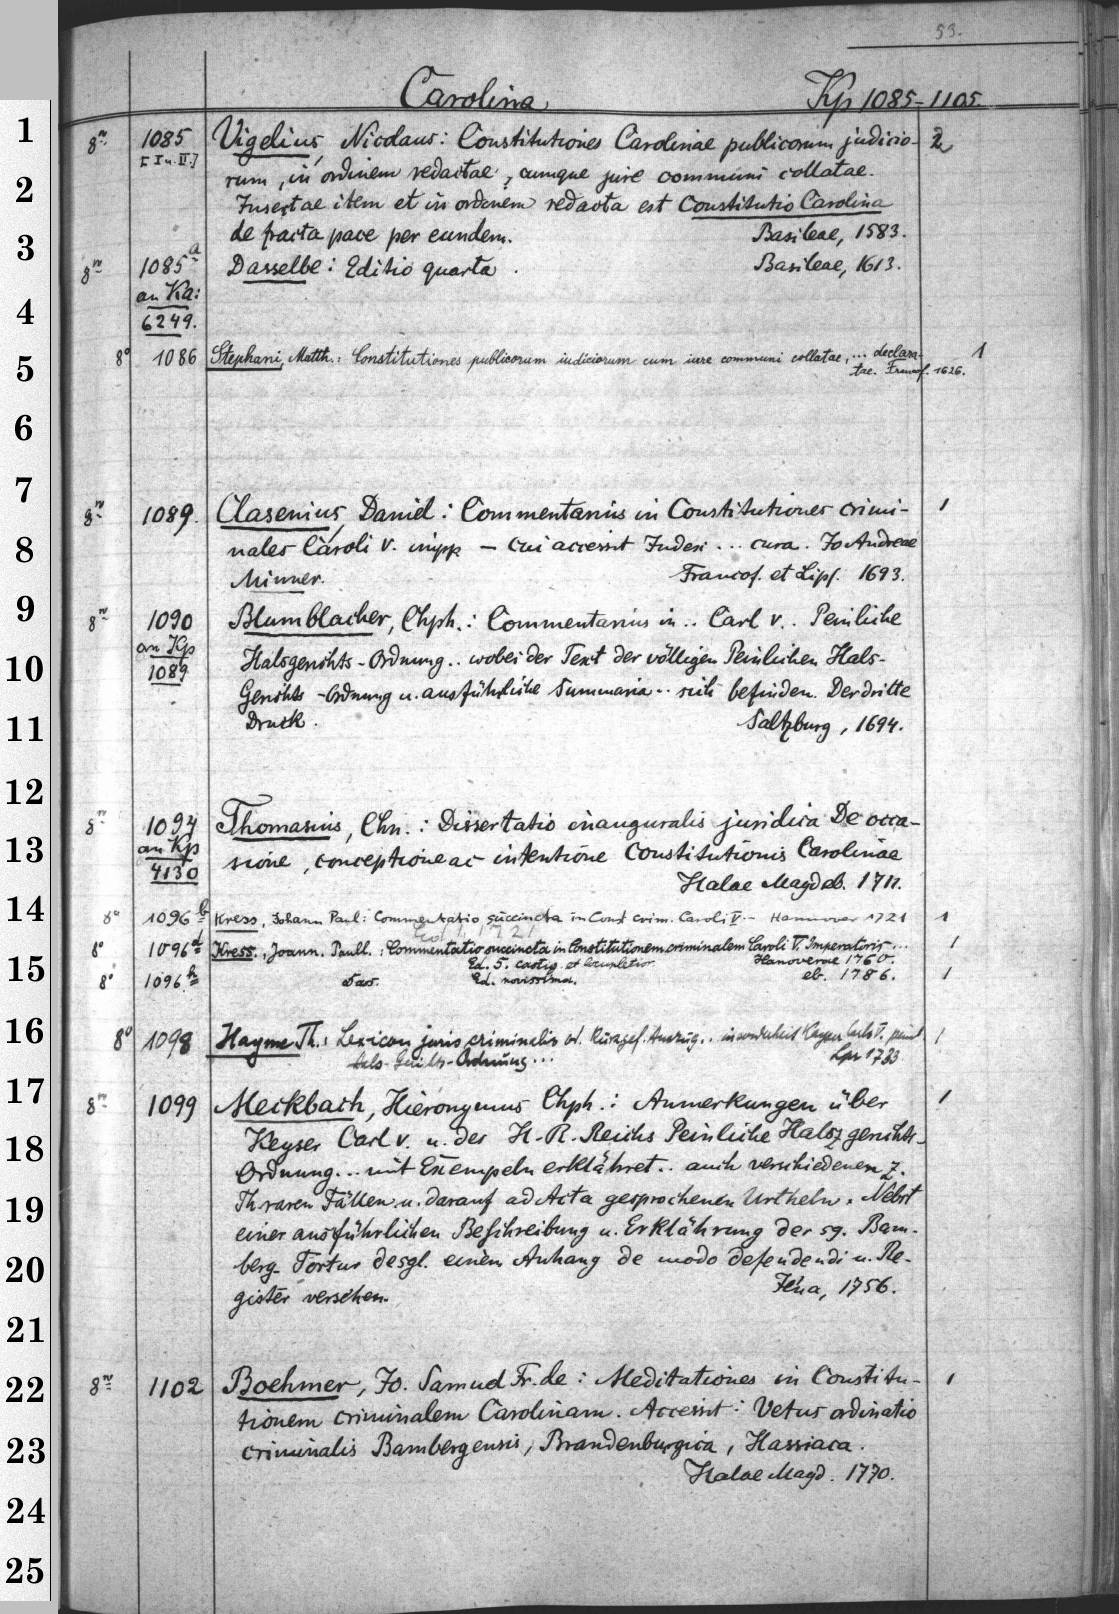 53.
Carolina Kp 1085-1105.
1
8° 1085 Vigelius, Nicolaus: Constitutiones Carolinae publicorum judicio- 2
[I u. II.]
2 rum, in ordinem redactae, cumque jure communi collatae.
Insertae item et in ordinem redacta est Constitutio Carolina
3 de fracta pace per eundem. Basileae, 1583.
8° 1085a Dasselbe: Editio quarta. Basileae, 1613.
an Ka:
4 6249.
8° 1086 Stephani, Matth.: Constitutiones publicorum iudiciorum cum iure communi collatae, ... declara- 1
5 tae. Francof. 1626.
6
7
8° 1089. Clasenius, Daniel: Commentarius in Constitutiones crimi- 1
8 nales Caroli V. impp — cui accessit Index ... cura. Jo Andreae
Minner. Francof. et Lips. 1693.
9
8° 1090 Blumblacher, Chph.: Commentarius in .. Carl v.. Peinliche
an Kp
10 1089 Halsgerichts-Ordnung.. wobei der Text der völligen Peinlichen Hals-
Gerichts-Ordnung u. ausführliche Summaria.. sich befinden. Der dritte
11 Druck. Saltzburg, 1694.
12
8° 1094 Thomasius, Chn.: Dissertatio inauguralis juridica De occa-
an Kp
13 4130 sione, conceptione ac intentione Constitutionis Carolinae
Halae Magdeb. 1711.
14
8° 1096b Kress, Johann Paul: Commentatio succincta in Const crim. Caroli V — Hannover 1721 1
8° 1096d Kress., Joann. Paull.: Commentatio succincta in Constitutionem criminalem Caroli V. Imperatoris... 1
15 Ed. 5. castig. et locupletior Hanoverae 1760.
8° 1096h Das. Ed. novissima. eb. 1786. 1
16
8° 1098 Hayme Th.: Lexicon juris criminalis od. Kurzgef. Auszug.. insonderheit Kayser Carls V. peinl 1
Hals-Gerichts-Ordnung... Lpz 1733
17
8° 1099 Meckbach, Hieronymus Chph.: Anmerkungen über 1
18 Keyser Carl v. u. des H. R. Reichs Peinliche Halsz gerichts-
Ordnung... mit Exempeln erklähret.. auch verschiedenen z.
19 Th. raren Fällen u. darauf ad Acta gesprochenen Urtheln. Nebst
einer ausführlichen Beschreibung u. Erklährung der sg. Bam-
20 berg. Tortur desgl. einem Anhang de modo defendendi u. Re-
gister versehen. Jena, 1756.
21
22
8° 1102 Boehmer, Jo. Samuel Fr. de: Meditationes in Constitu- 1
tionem criminalem Carolinam. Accessit: Vetus ordinatio
23 criminalis Bambergensis, Brandenburgica, Hassiaca.
Halae Magd. 1770.
24
25